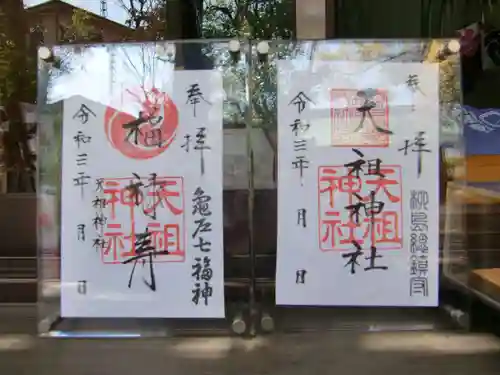 奉拝
柳島總鎮守
天祖神社
天祖神社
令和三年 月 日
奉拝
亀戸七福神
福禄寿
天祖神社
天祖神社
令和三年 月 日